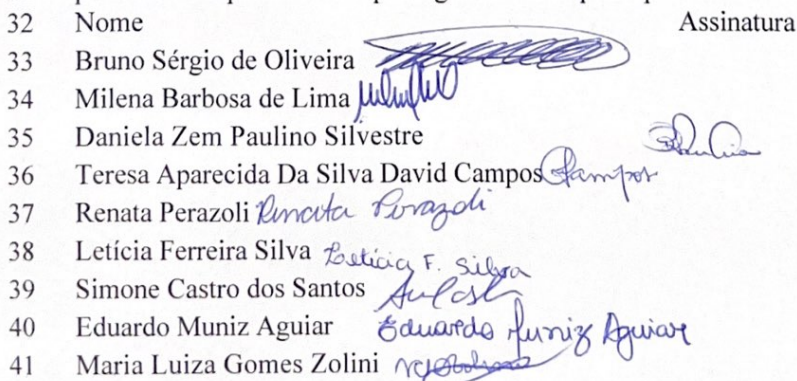 32 Nome Assinatura
33 Bruno Sérgio de Oliveira
34 Milena Barbosa de Lima
35 Daniela Zem Paulino Silvestre
36 Teresa Aparecida Da Silva David Campos Campos
37 Renata Perazoli Renata Perazoli
38 Letícia Ferreira Silva Letícia F. Silva
39 Simone Castro dos Santos
40 Eduardo Muniz Aguiar Eduardo Muniz Aguiar
41 Maria Luiza Gomes Zolini